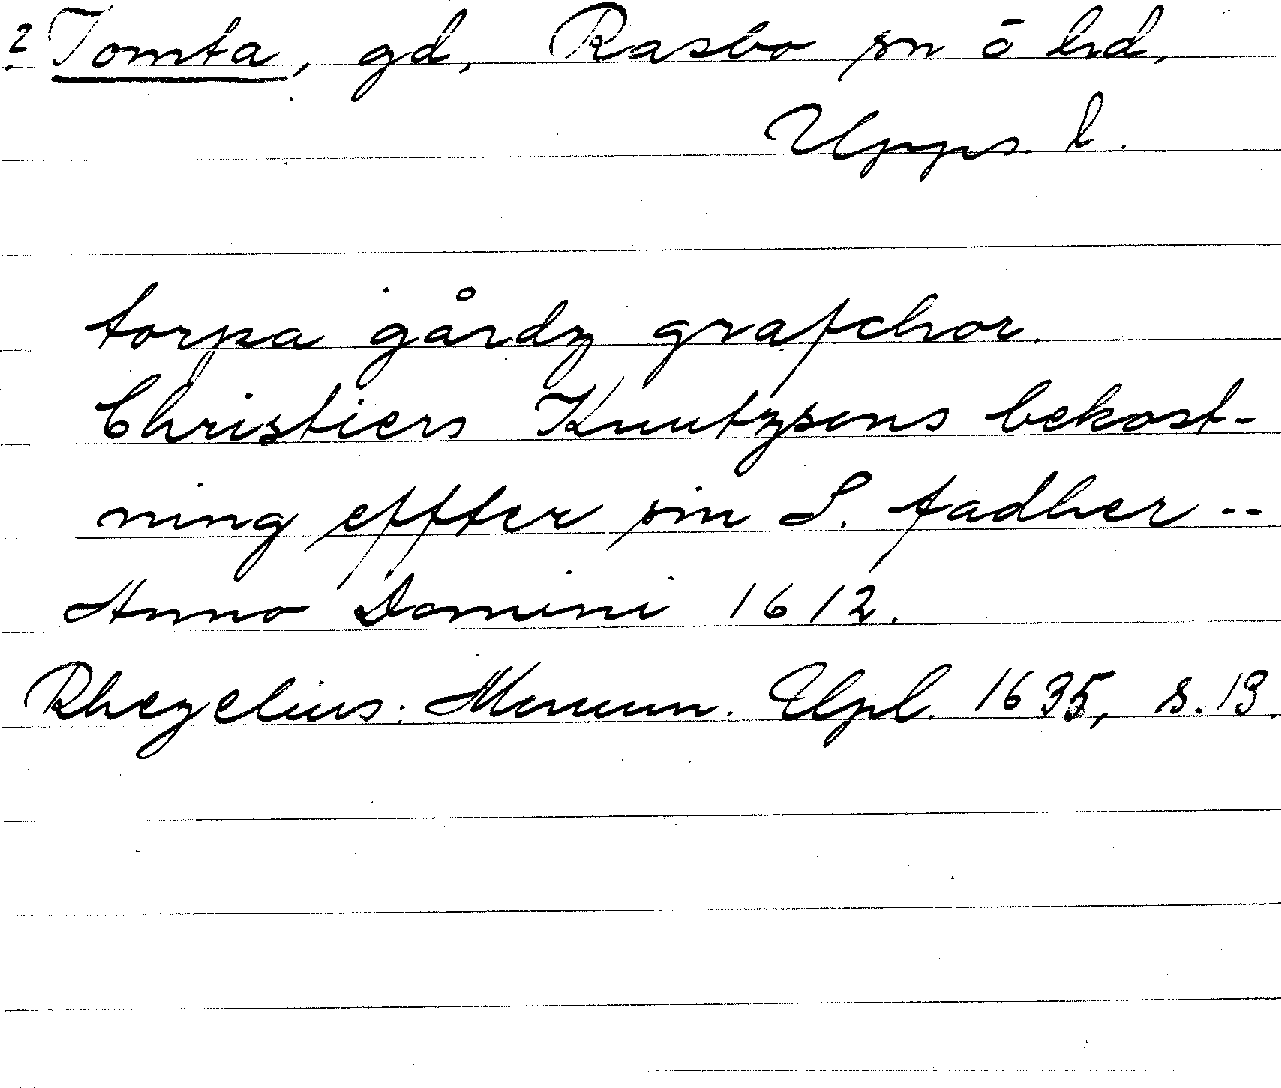 ? Tomta, gd, Rasbo sn o hd,
Upps. l.
torpa gårdz grafchor.
Christiers Knutzsons bekost-
ning effter sin S. fadher --
Anno Domini 1612.
Rhezelius. Monum. Upl. 1635, s. 13.